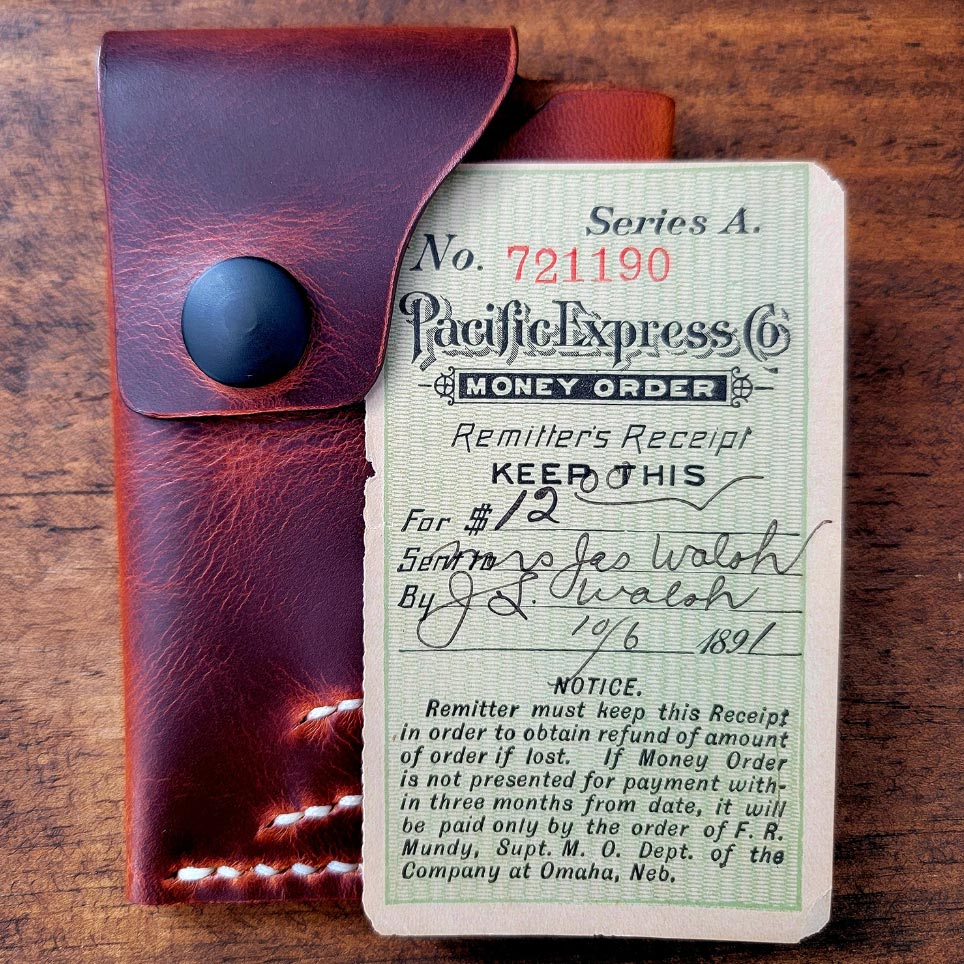 Series A.
No. 721190
Pacific Express Co
MONEY ORDER
Remitter's Receipt
KEEP THIS
For $ 12 00
Sent to Mrs Jas Walsh
By J. L. Walsh
10/6 1891
NOTICE.
Remitter must keep this Receipt
in order to obtain refund of amount
of order if lost. If Money Order
is not presented for payment with-
in three months from date, it will
be paid only by the order of F. R.
Mundy, Supt. M. O. Dept. of the
Company at Omaha, Neb.